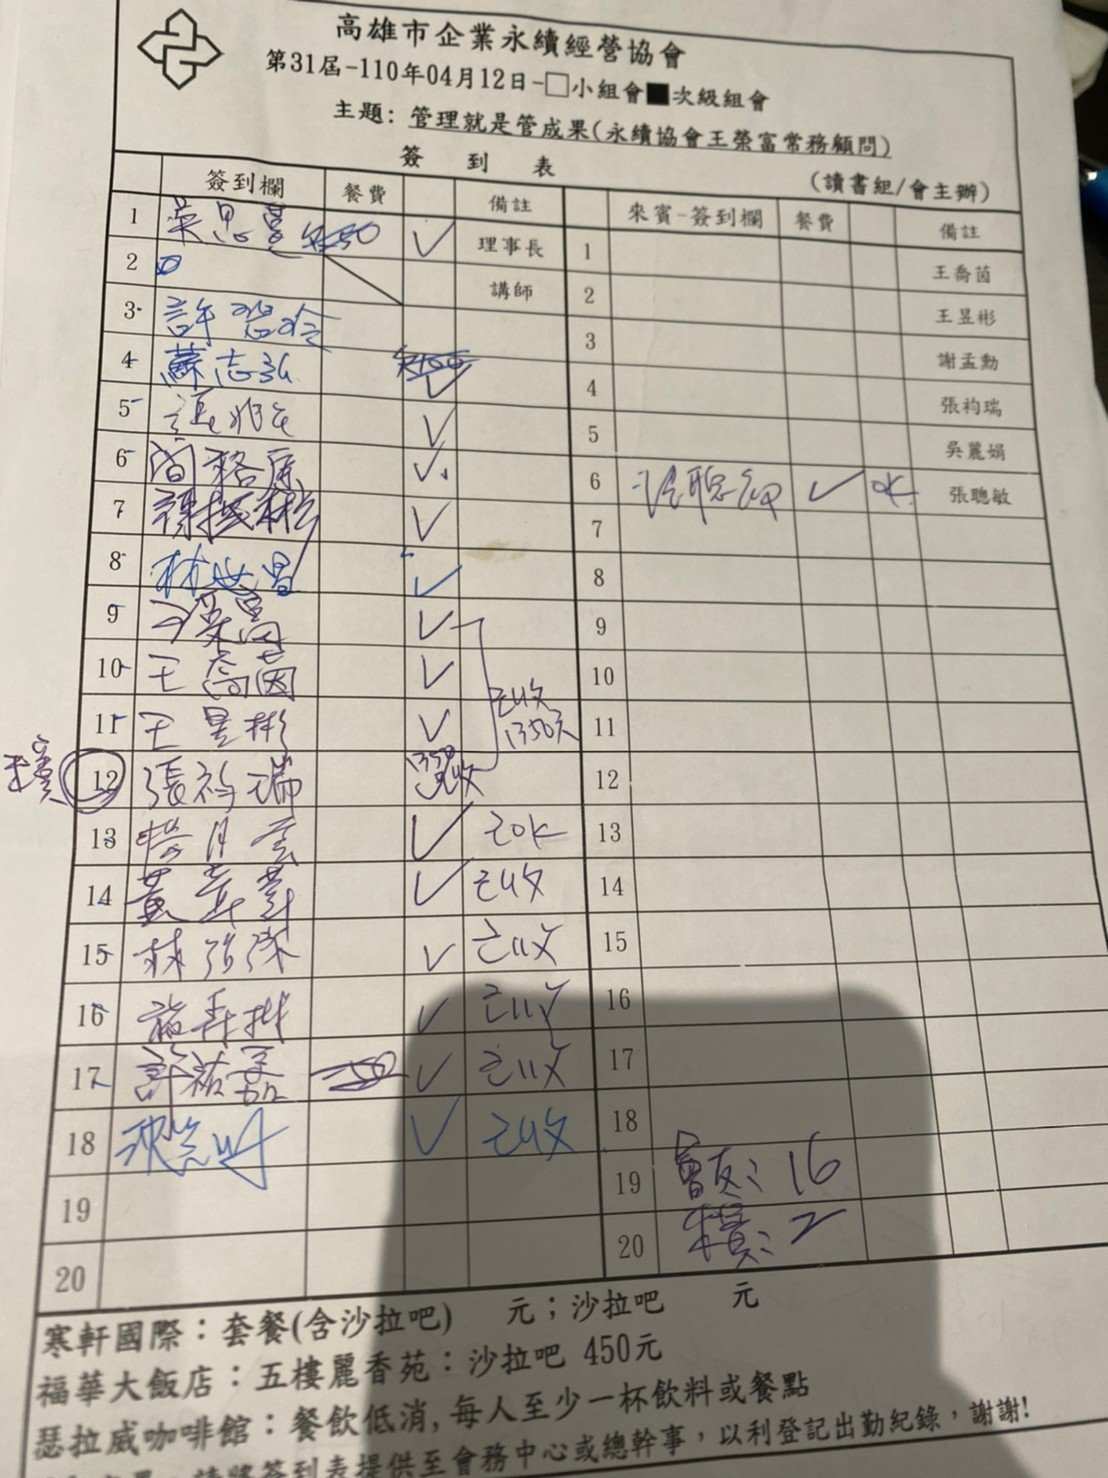 高雄市企業永續經營協會
第31屆-110年04月12日-□小組會■次級組會
主題: 管理就是管成果(永續協會王榮富常務顧問)
簽 到 表
(讀書組/會主辦)
簽到欄 餐費 備註 來賓-簽到欄 餐費 備註
1 450 ✓ 理事長 1 王喬茵
2 講師 2 王昱彬
3 許 3 謝孟勳
4 蘇志弘 ✓ 4 張袀瑞
5 ✓ 5 吳麗娟
6 ✓ 6 張聰敏 ✓ OK 張聰敏
7 ✓ 7
8 林世昌 ✓ 8
9 王榮富 ✓ 9
10 王喬茵 ✓ 已收 10
11 王昱彬 ✓ 1350元 11
來賓 12 張袀瑞 已收 12
13 ✓ 已OK 13
14 黃 ✓ 已收 14
15 林 ✓ 已收 15
16 ✓ 已收 16
17 許祐嘉 ✓ 已收 17
18 ✓ 已收 18
19 19 會友: 16
20 20 來賓: 2
寒軒國際：套餐(含沙拉吧) 元；沙拉吧 元
福華大飯店：五樓麗香苑：沙拉吧 450元
瑟拉威咖啡館：餐飲低消, 每人至少一杯飲料或餐點
請將簽到表提供至會務中心或總幹事，以利登記出勤紀錄，謝謝!